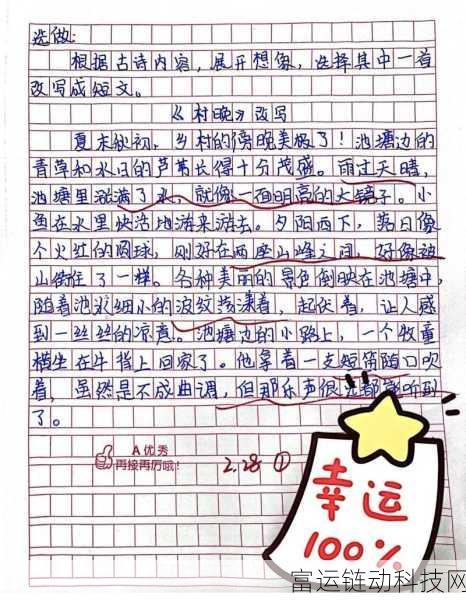 选做:
根据古诗内容,展开想像,选择其中一首
改写成短文。
《村晚》改写
夏末秋初,乡村的傍晚美极了!池塘边的
青草和水口的芦苇长得十分茂盛。雨过天晴,
池塘里涨满了水,就像一面明亮的大镜子。小
鱼在水里快活地游来游去。夕阳西下,落日像
个火红的圆球,刚好在两座山峰之间,好像被
山衔住了一样。各种美丽的景色倒映在池塘中,
随着池水细小的波纹荡漾着,起伏着,让人感
到一丝丝的凉意。池塘边的小路上,一个牧童
横坐在牛背上回家了。他拿着一支短笛随口吹
着,虽然是不成曲调,但那乐声很远都能听到
了。
A优秀
再接再厉哦!
2.28 ①
幸运
100%
富运链动科技网